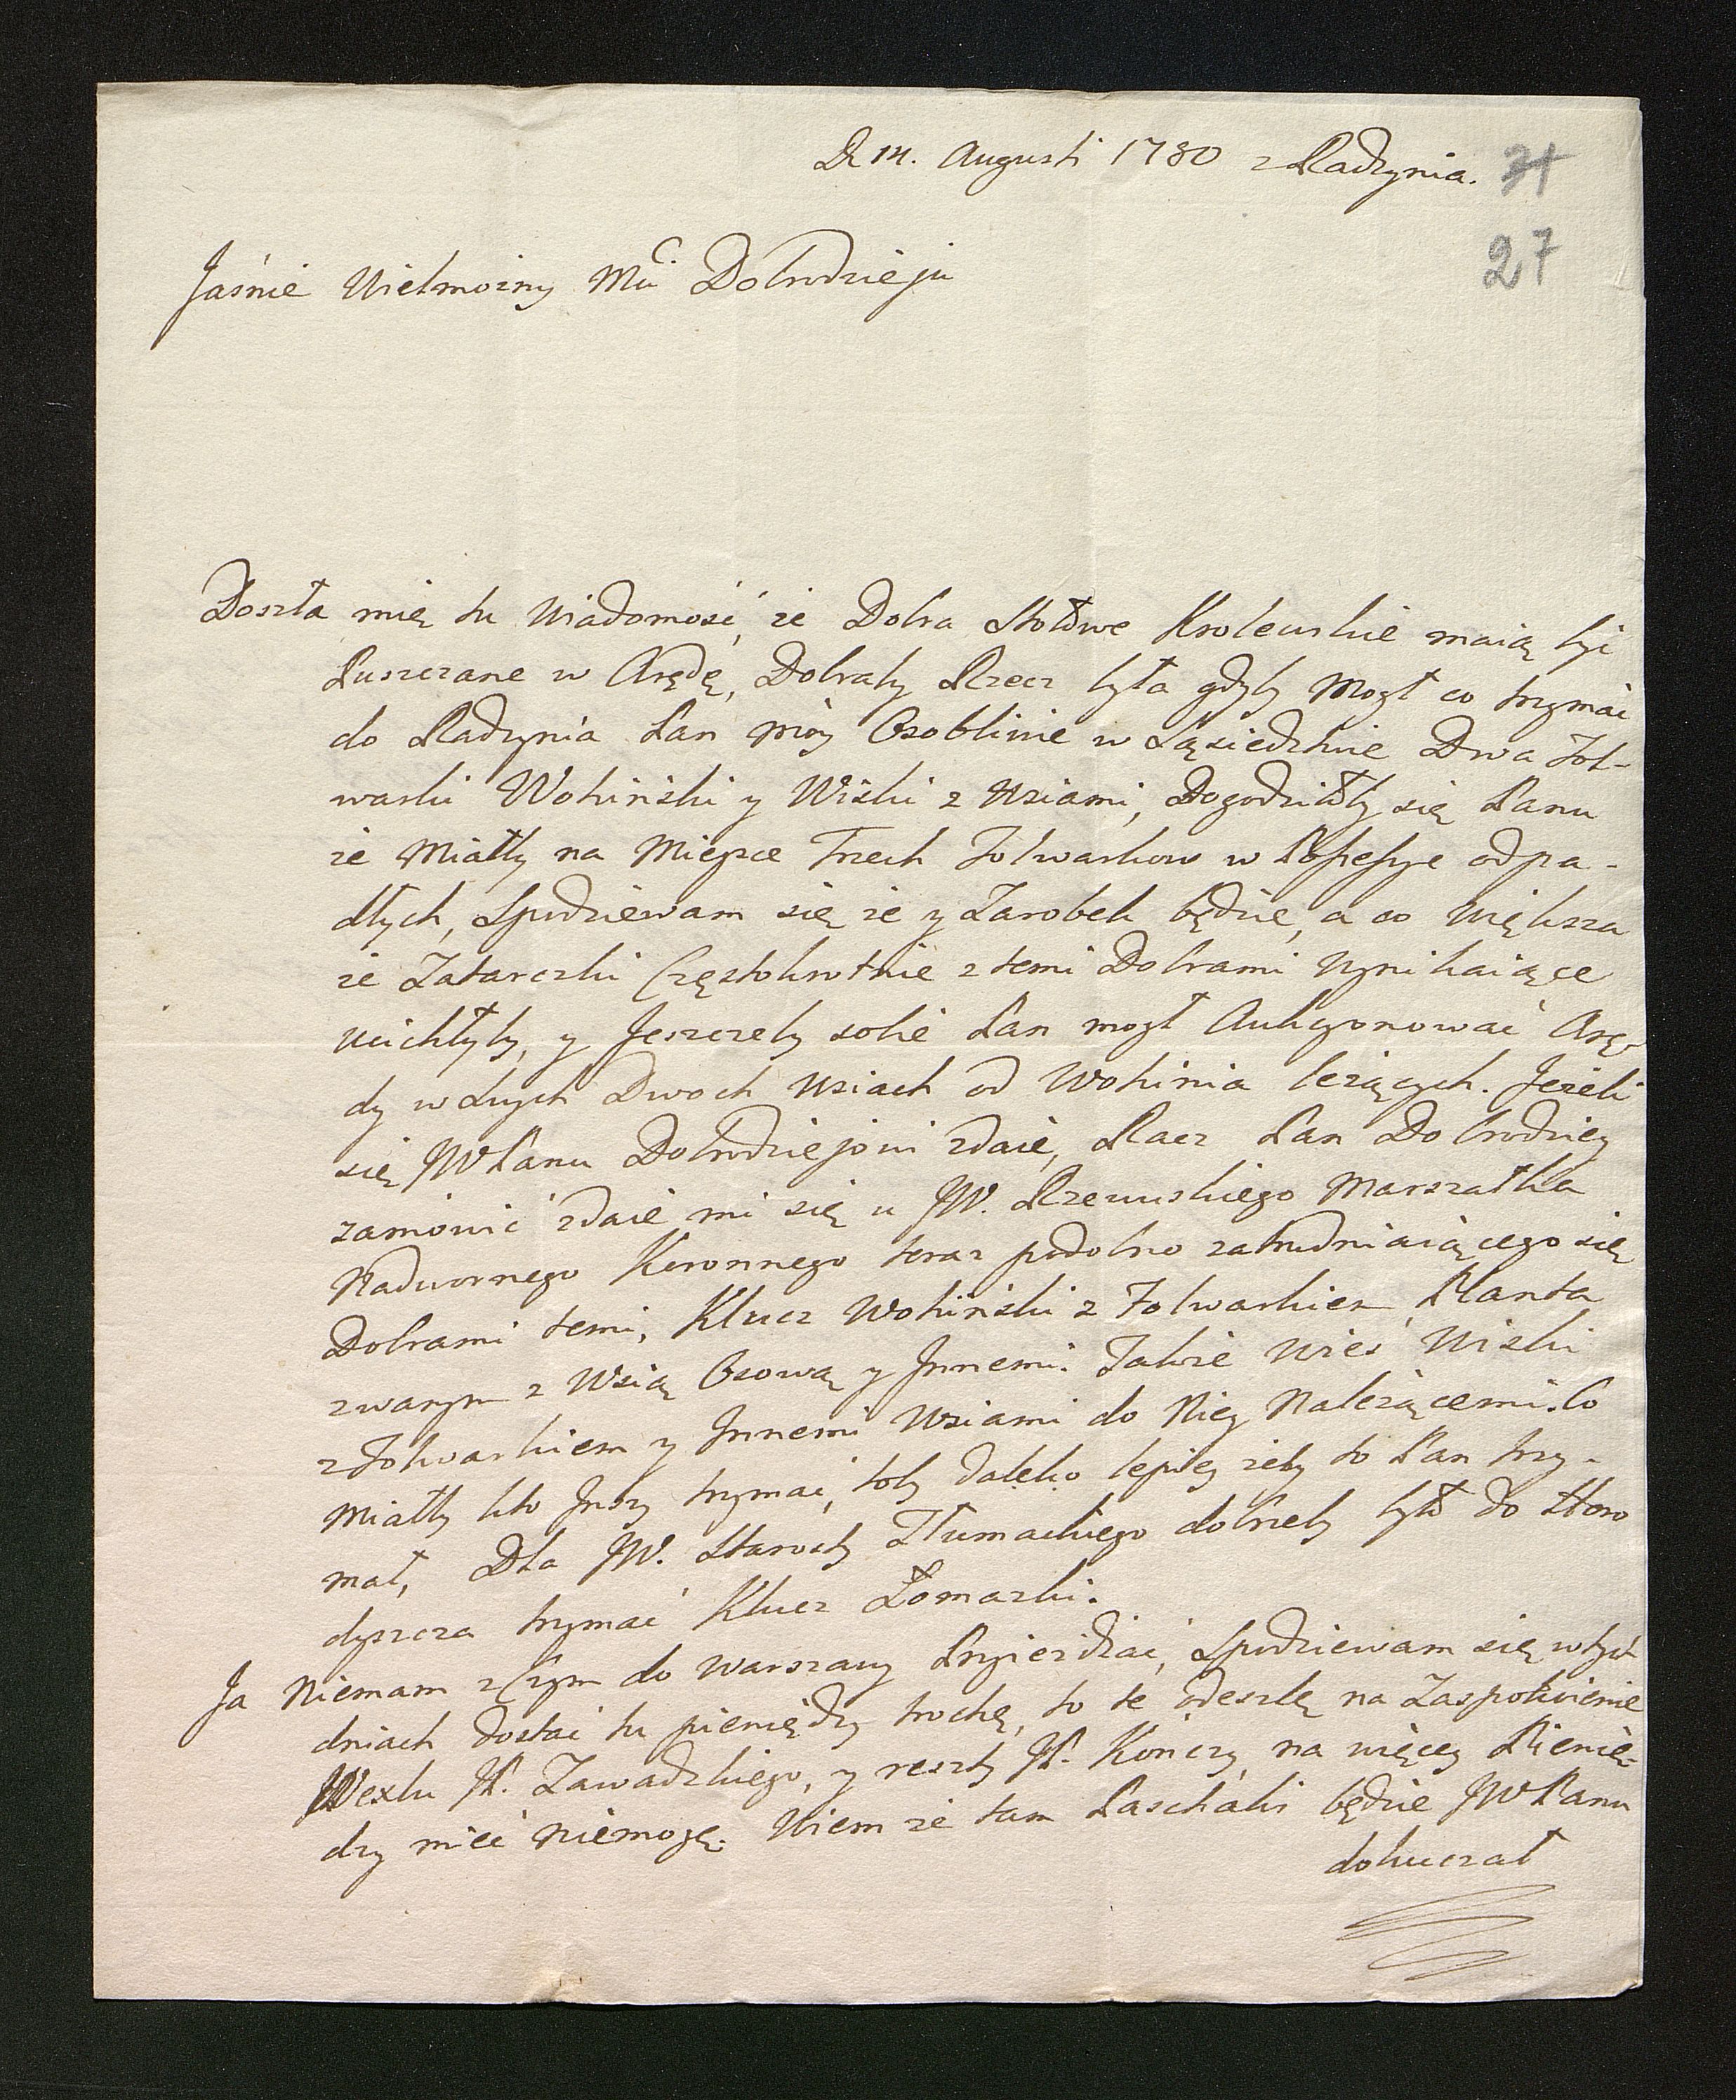 D 14. Augusti 1780 z Radzynia.
31
27
Jaśnie Wielmożny Mci Dobrodzieju
Doszła mię tu Wiadomość, że Dobra Stołowe Krolewskie maią być
Puszczane w Arędę, Dobraby Rzecz była gdyby Mogł co trzymać
do Radzynia Pan móy Osobliwie w Sąsiedztwie Dwa Fol-
warki Wohiński y Wiski z Wsiami, Dogodziłoby się Panu
że Miałby na Mieysce Trzech Folwarkow w Possessye odpa-
dłych, Spodziewam się że y Zarobek będzie, a co Większa
że Zatarczki Częstokrotnie z temi Dobrami Wynikaiące
Ucichłyby, y Jeszczeby sobie Pan mogł Aukcyonować Arę-
dy w Luzych Dwoch Wsiach od Wohinia leżących. Jeżeli
się JWPanu Dobrodziejowi zdaie, Racz Pan Dobrodziey
zamowić zdaie mi się u JW. Rzewuskiego Marszałka
Nadwornego Koronnego teraz podobno zatrudniaiącego się
Dobrami temi, Klucz Wohiński z Folwarkiem Planta
zwanym z Wsią Osową y Jnnemi. Także Wieś Wiski
z Folwarkiem y Jnnemi Wsiami do Niey Należącemi. Co
Miałby kto Jnszy trzymać, toby daleko lepiey żeby to Pan trzy-
mał, Dla JW. Starosty Tłumackiego dobrzeby było do Horo
dyszcza trzymać Klucz Łomazki.
Ja Niemam z Czym do Warszawy Przyieżdżać, Spodziewam się w tych
dniach dostać tu pieniędzy trochę, to te odeszlę na Zaspokoienie
Wexlu JP. Zawadzkiego, y reszty JP. Kończy, na więcey Pienię-
dzy mieć niemogę. Wiem że tam Paschalis będzie JWPanu
dokuczał